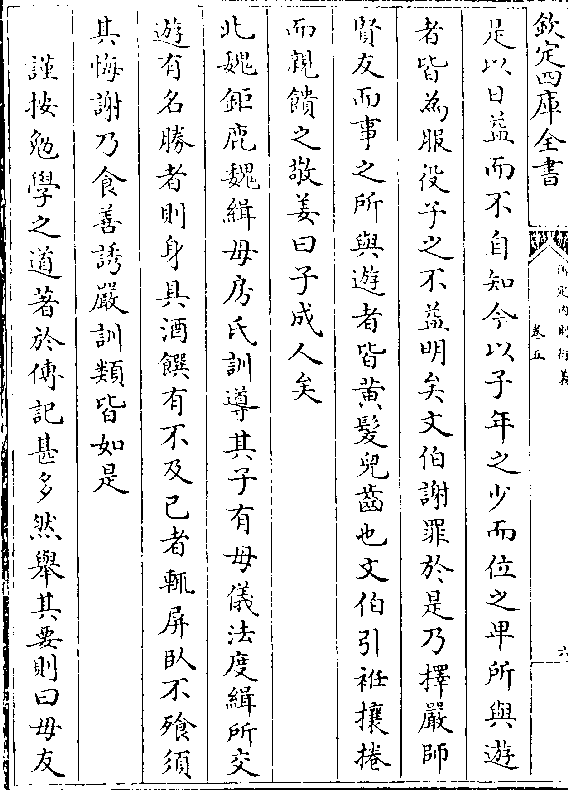 欽定四庫全書
御定内則衍義
卷五
六
足以日益而不自知今以子年之少而位之卑所與遊
者皆為服役子之不益明矣文伯謝罪於是乃擇嚴師
賢友而事之所與遊者皆黄髮兒齒也文伯引袵攘捲
而親饋之敬姜曰子成人矣
北魏鉅鹿魏緝母房氏訓導其子有母儀法度緝所交
遊有名勝者則身具酒饌有不及已者輒屏臥不飱須
其悔謝乃食善誘嚴訓類皆如是
謹按勉學之道著於傳記甚多然舉其要則曰毋友